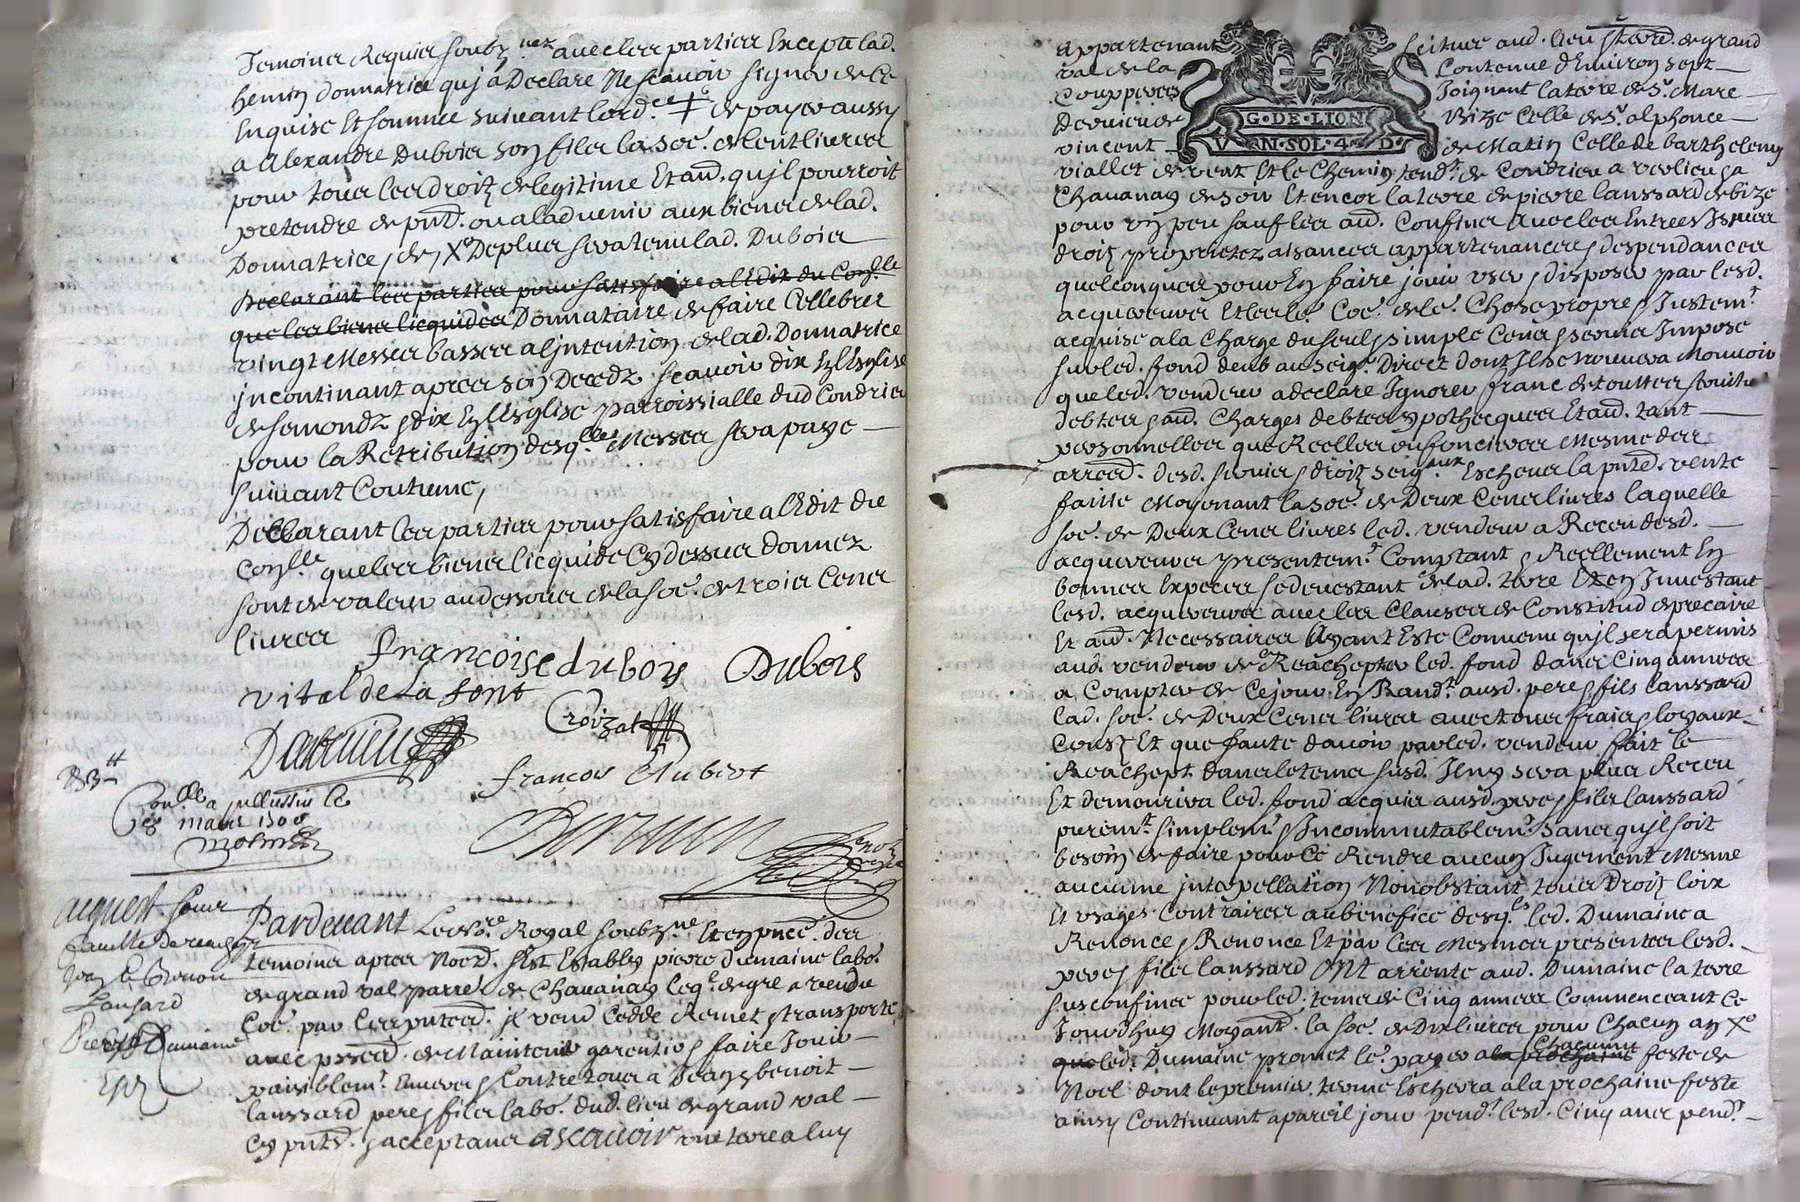 Temoines Requis soubz.nez avec les parties Excepte lad.
hemin donnatrice quj à Declare Ne scavoir signer de Ce
Enquise Et sommee suivant lord.ce de payer aussy
a Alexandre Dubois son fils la soe. de Cent livres
pour tous les droitz de legitime Et aud. qu'jl pourroit
pretendre de pnt. ou aladvenir aux biens de lad.
Donnatrice, de, Xe Deplus sera tenu lad. Dubois
Declarant les parties pour satisfaire al Edit du Con.lle
que les biens licquides Donnataire de faire Cellebrer
vingt Messes basses al jntention de lad. Donnatrice
jncontinant apres son Decedz scavoir dix En l'Esglise
de semondz & dix En l'Esglise parroissialle dud Condrieu
pour la Retribution desq.lles Messes sera paye
suivant Coutume,
Declarant les parties pour satisfaire al Edit du
Con.lle que les biens licquide Cy dessus donnez
sont de valeur au dessous de la soe. de trois Cens
livres
françoise dubois Dubois
vital de La font
Croizat
Darnieu
françois Aubert
Con.lle a pellussin le
mars 1700
acquest pour
Jean & Benoit
Lanssard
Pierre Dumaine
Pardevant Le no.re Royal soubz.ne Et en pnce. des
temoins apres Nord. s'Est Estably pierre Dumaine labo.
de grand val parre. de Chavanay leq.l de gre a vendu
Coe. par Ces pntes. jl vend Cedde Remet & transporte
avec prsse. de Maintenir garentir & faire Jouir
paisiblem.t Envers & Contre tous à Jean & benoit
lanssard pere & fils labo. dud. lieu de grand val
Cy pnts. & acceptans ascavoir une terre a luy
appartenant scituee aud. lieu & terrd. de grand
val de la Contenue d'Environ sept
Couppees Joignant la terre de Sr. Mare
Dernieu de Bize Celle de Sr. alphonce
G·DE·LION
vincent de Matin Celle de barthelemy
V N·SOL·4 D·
viallet de vent Et le Chemin tend.t de Condrieu a verlieu &
Chavanay de soir Et encor la terre de pierre lanssard de bize
pour un peu sauf les aud. Confins avec les Entrees Issues
droitz proprietez aisances appartenances & despendances
quelconques pour En faire jouir user & disposer par lesd.
acquereurs Et les le. Coe. de le. Chose propre & Justem.t
acquise a la Charge du seul & simple Cens & servis Impose
sur led. fond deub au seig.r Direct dont Il se trouvera Mouvoir
que led. vendeur a declare Ignorer franc de touttes servitu
debtes & aud. Charges debtes ypothecques Et aud. tant
personnelles que Reelles ou fonciere Mesme des
arreed. desd. servis & droitz seig.aux Escheus la pnted. vente
faitte Moyenant la soe. de Deux Cens livres laquelle
soe. de Deux Cens livres led. vendeur a Receu desd.
acquereurs presentem.t Comptant & Reellement En
bonnes Especes se devestant de lad. terre Et en Investant
lesd. acquereurs avec les Clauses de Constitud & precaire
Et aud. Necessaires Ayant Este Convenu qu'jl sera permis
aud. vendeur de Reachepter led. fond dans Cinq annees
a Compter de Ce jour En Rand.t ausd. pere & fils lanssard
lad. soe. de Deux Cens livres avec tous frais & loyaux
Coustz Et que faute d'avoir par led. vendeur fait le
Reachept dans le tems susd. Il ny sera plus Receu
Et demourera led. fond acquis ausd. pere & fils lanssard
purem.t simplem.t & Incommutablem.t sans qu'jl soit
besoin de faire pour Ce Rendre aucun Jugement Mesme
aucune jnterpellation Nonobstant tous Droitz loix
Et usages Contraires au benefice desq.ls led. Dumaine a
Renonce & Renonce Et par les Mesmes presentes lesd.
pere & fils lanssard ONT arrente aud. Dumaine la terre
sus confinee pour led. tems de Cinq annees Commenceant Ce
Jourdhuy Moyant. la soe. de Dix livres pour Chacun an Xe
que led. Dumaine promet le.r payer a la prochaine Chacunne feste de
Noel dont le premier terme Eschera a la prochaine feste
ainsy Continuant a pareil jour pend.t lesd. Cinq anes pend.t